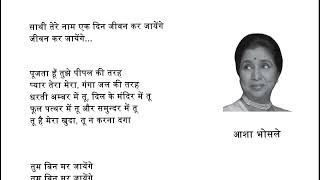 साथी तेरे नाम एक दिन जीवन कर जायेंगे
जीवन कर जायेंगे...
पूजता हूँ तुझे पीपल की तरह
प्यार तेरा मेरा, गंगा जल की तरह
धरती अम्बर में तू, दिल के मंदिर में तू
फूल पत्थर में तू और समुन्दर में तू
तू है मेरा खुदा, तू न करना दगा
आशा भोसले
तुम बिन मर जायेंगे
तुम बिन मर जायेंगे